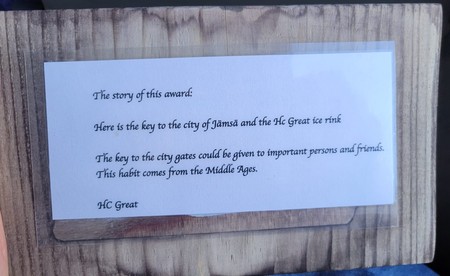 The story of this award:
Here is the key to the city of Jämsä and the Hc Great ice rink
The key to the city gates could be given to important persons and friends.
This habit comes from the Middle Ages.
HC Great